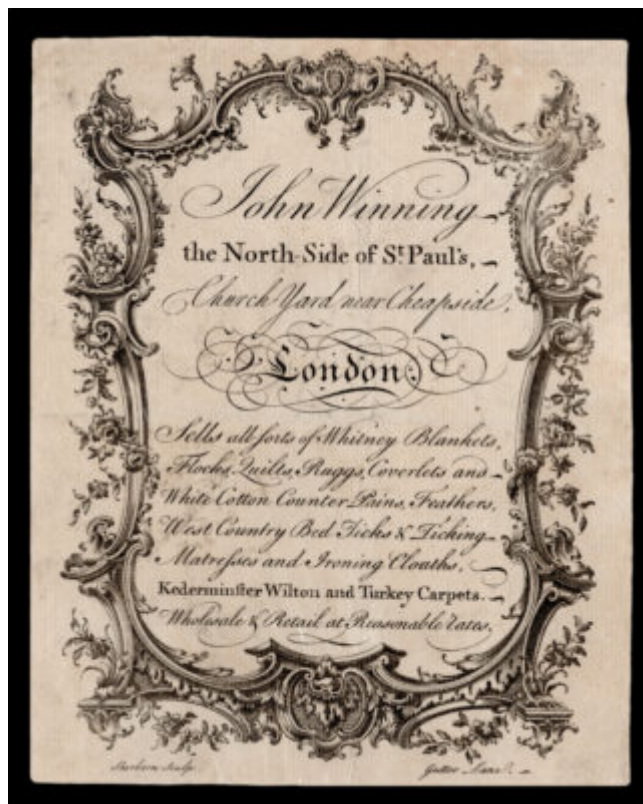 John Winning
the North-Side of St. Paul's,
Church Yard near Cheapside,
London.
Sells all sorts of Whitney Blankets,
Flocks, Quilts, Ruggs, Coverlets and
White Cotton Counter-Pains, Feathers,
West Country Bed Ticks & Ticking
Matresses and Ironing Cloaths,
Kederminster Wilton and Turkey Carpets.
Wholesale & Retail at Reasonable Rates.
Sculp.
Gutter Lane